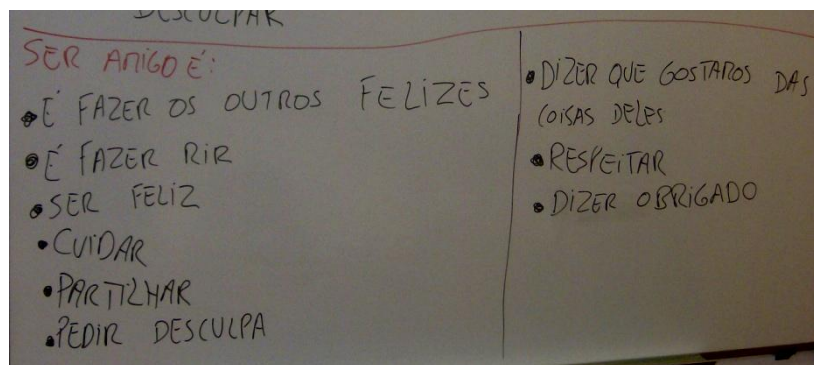 DESCULPAR
SER AMIGO É:
• É FAZER OS OUTROS FELIZES
• É FAZER RIR
• SER FELIZ
• CUIDAR
• PARTILHAR
• PEDIR DESCULPA
• DIZER QUE GOSTAMOS DAS
COISAS DELES
• RESPEITAR
• DIZER OBRIGADO